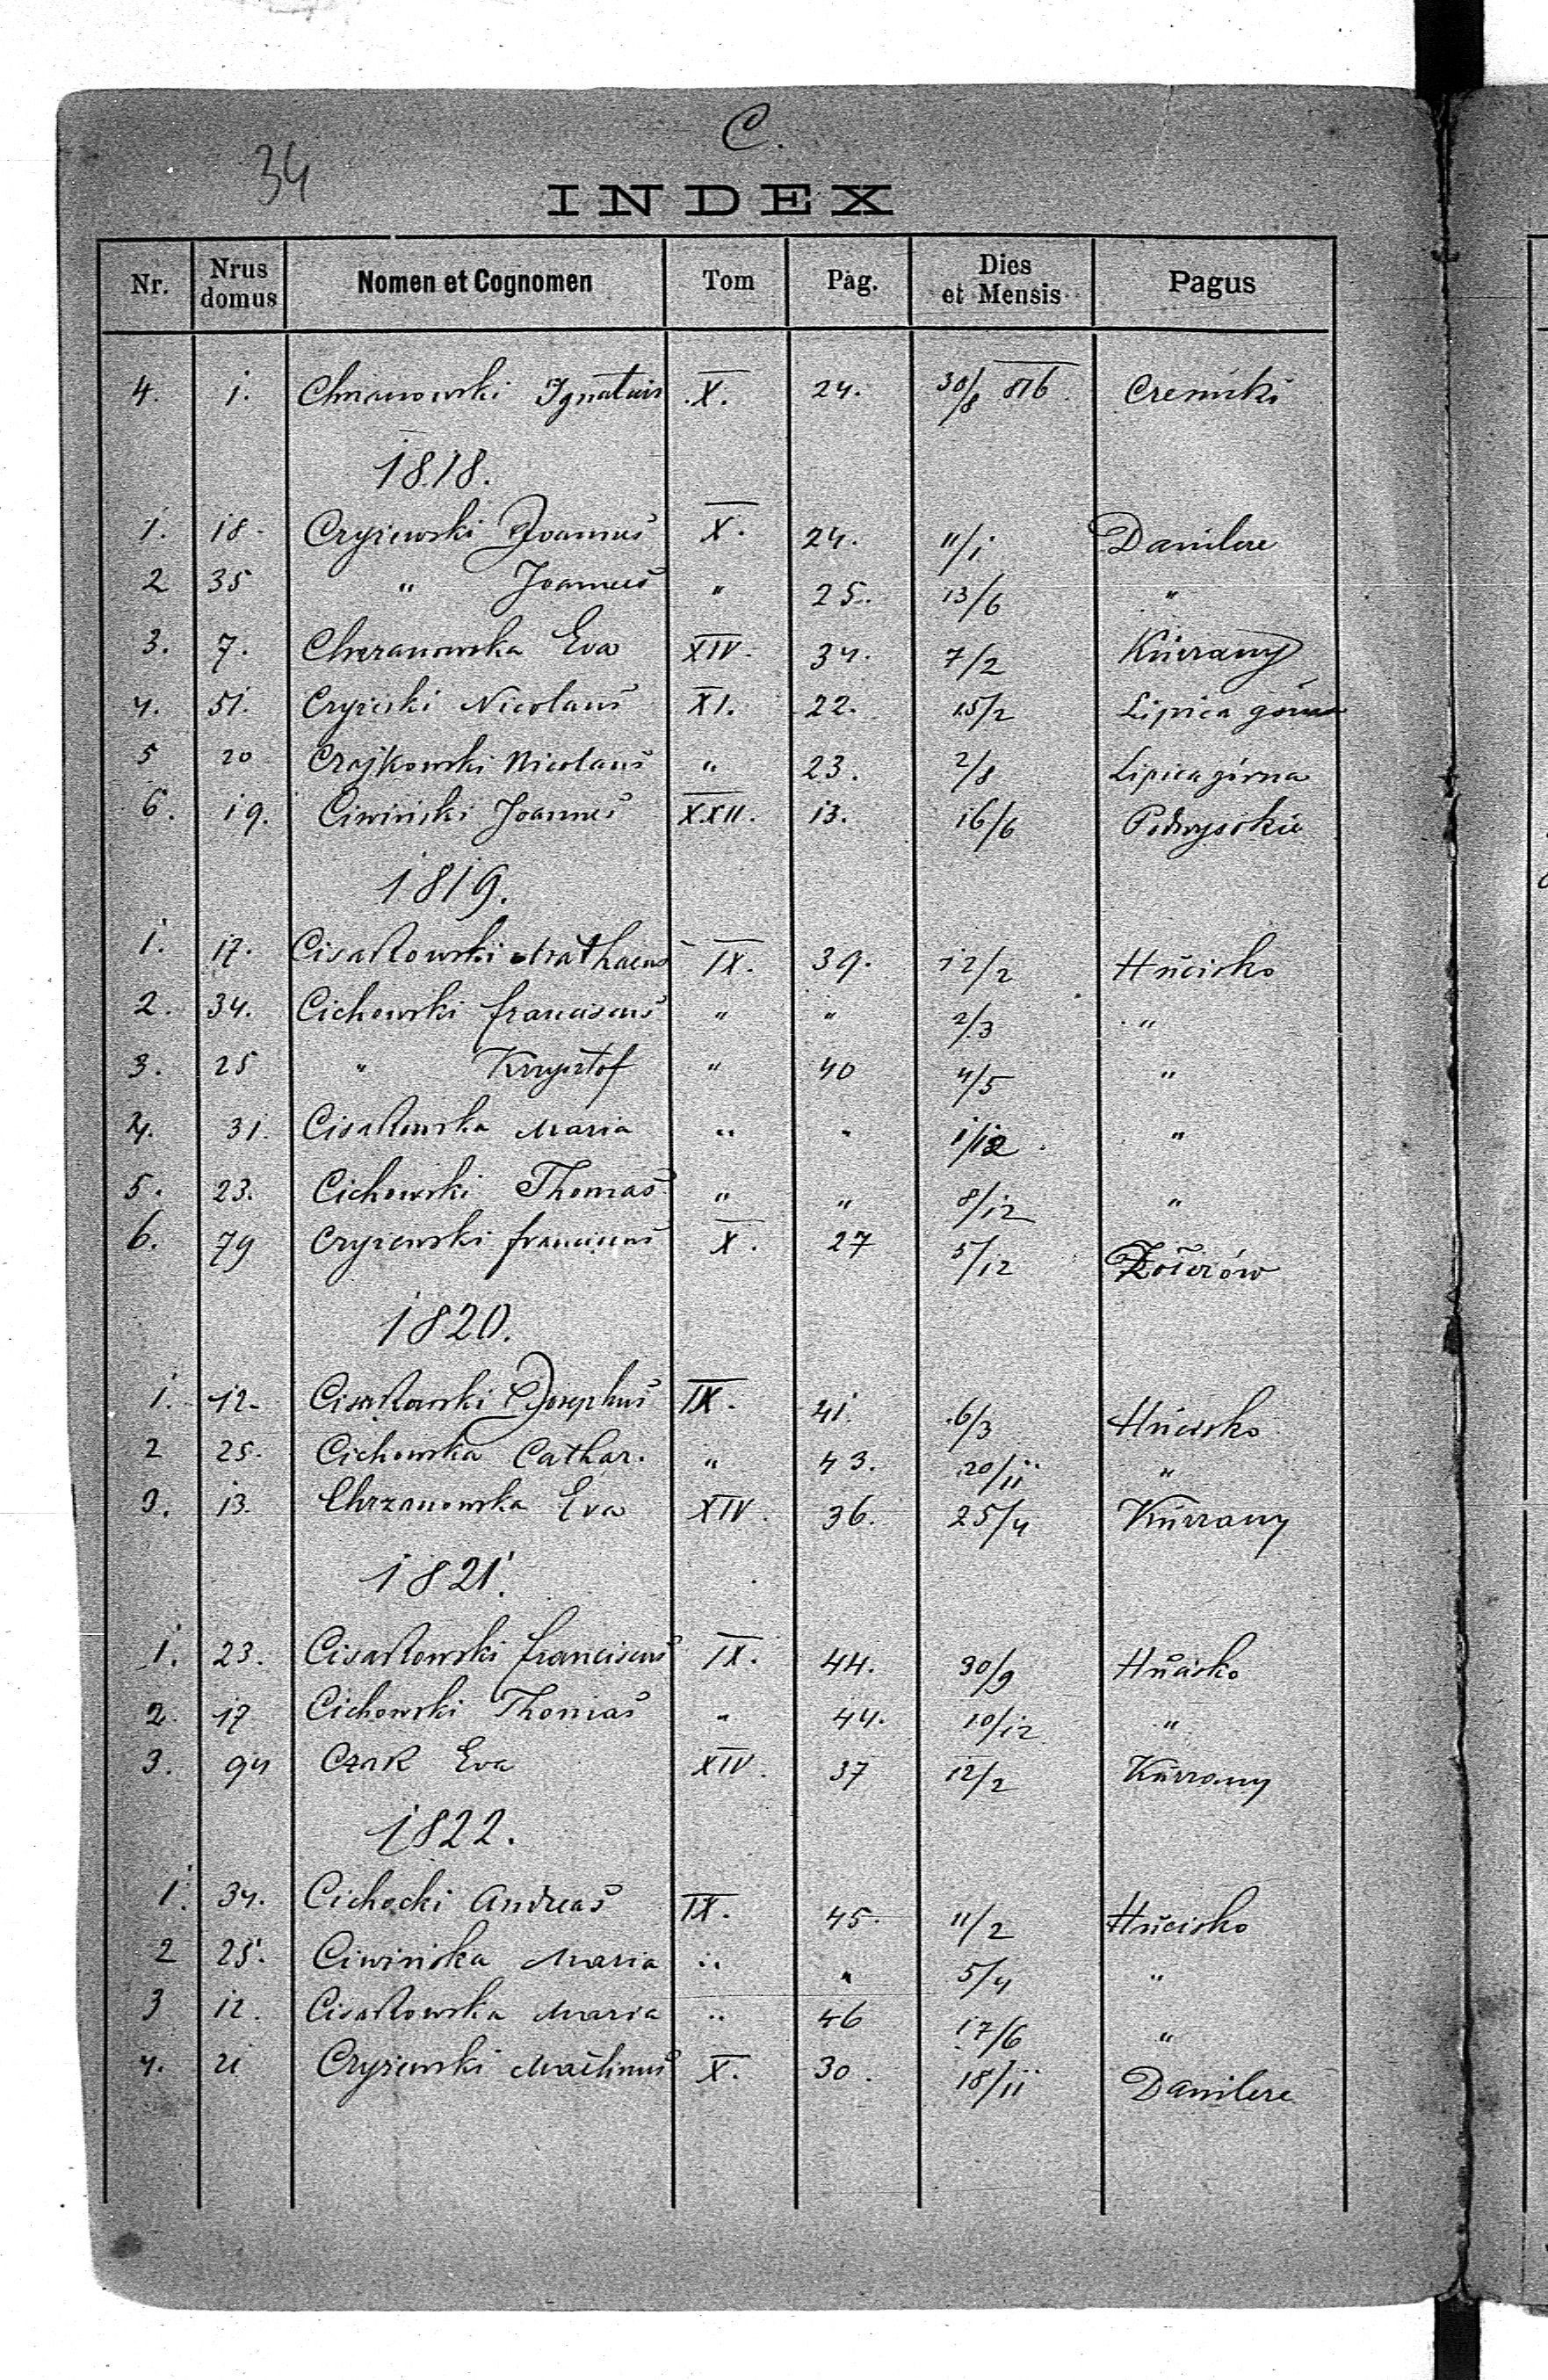 C.
34
INDEX
Nr. Nrus domus Nomen et Cognomen Tom Pag. Dies et Mensis Pagus
4. 1. Chrzanowski Ignatius X. 24. 30/8 816. Czeniki
1818.
1. 18. Czyzewski Joannes X. 24. 11/1 Danilcze
2 35 " Joannes " 25. 13/6 "
3. 7. Chrzanowska Eva XIV. 34. 7/2 Kurzany
4. 51. Czyzcski Nicolaus XI. 22. 15/2 Lipica górna
5 20 Czajkowski Nicolaus " 23. 2/8 Lipica górna
6. 19. Ciwiński Joannes XXII. 13. 16/6 Podwysokie
1819.
1. 17. Cisarkowski Mathaeus IX. 39. 12/2 Hucisko
2. 34. Cichowski Franciscus " " 2/3 "
3. 25 " Krzysztof " 40 4/5 "
4. 31. Cisarkowska Maria " " 1/12 "
5. 23. Cichowski Thomas " " 8/12 "
6. 79 Czyzewski Franciscus X. 27 5/12
1820.
1. 12. Cisarkowski Josephus IX. 41. 6/3 Hucisko
2 25. Cichowska Cathar. " 43. 20/11 "
3. 13. Chrzanowska Eva XIV. 36. 25/4 Kurzany
1821.
1. 23. Cisarkowski Franciscus IX. 44. 30/9 Hucisko
2. 17 Cichowski Thomas " 44. 10/12 "
3. 94 Czak Eva XIV. 37 12/2 Kurzany
1822.
1. 34. Cichocki Andreas IX. 45. 11/2 Hucisko
2 25. Ciwińska Maria " " 5/4 "
3 12. Cisarkowska Maria " 46 17/6 "
4. 21 Czyzewski X. 30. 18/11 Danilcze